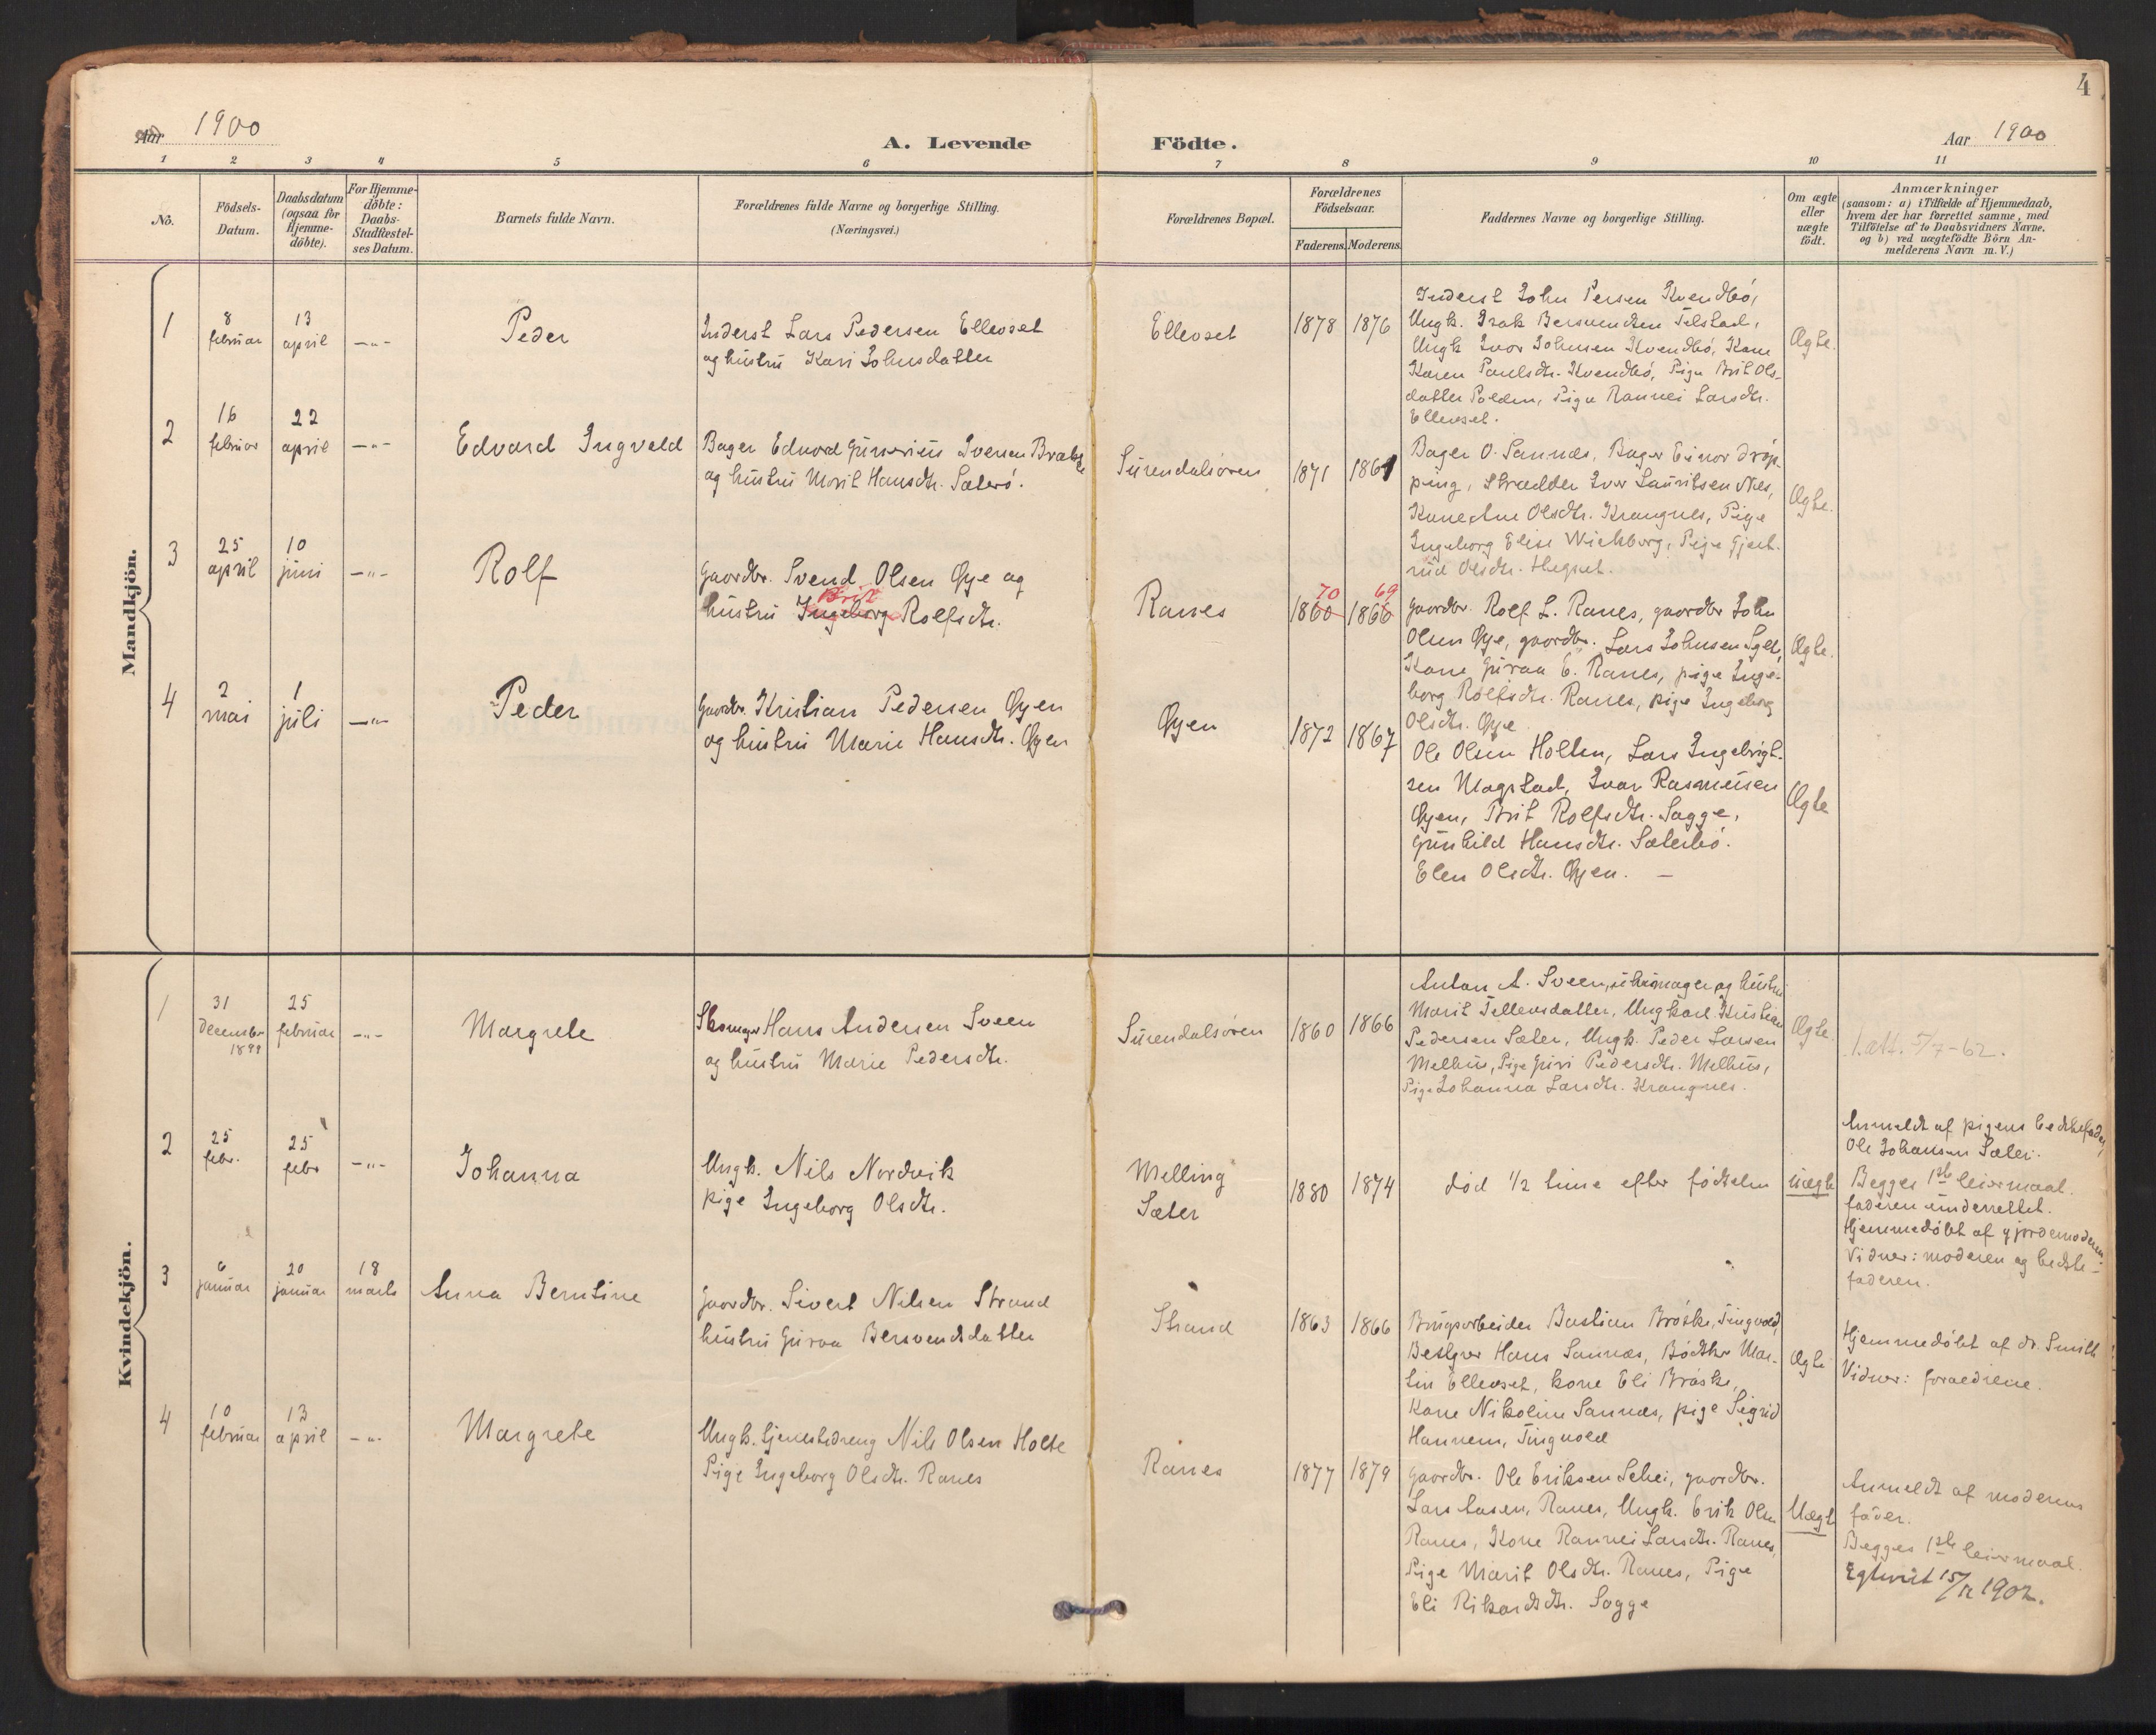 4
Aar 1900
A. Levende Födte.
Aar 1900
1 2 3 4 5 6 7 8 9 10 11
No.
Födsels-
Datum.
Daabsdatum
(ogsaa for
Hjemme-
döbte).
For Hjemme-
döbte:
Daabs-
Stadfæstel-
ses Datum.
Barnets fulde Navn.
Forældrenes fulde Navne og borgerlige Stilling.
(Næringsvei.)
Forældrenes Bopæl.
Forældrenes
Födselsaar.
Faderens. Moderens.
Faddernes Navne og borgerlige Stilling.
Om ægte
eller
uægte
födt.
Anmærkninger
(saasom: a) i Tilfælde af Hjemmedaab,
hvem der har forrettet samme, med
Tilföielse af to Daabsvidners Navne.
og b) ved uægtefödte Börn An-
melderens Navn m. V.)
Mandkjön.
1
8
februar
13
april
—"–
Peder
Inderst Lars Pedersen Ellevset
og hustru Kari Johnsdatter
Ellevset
1878 1876
Inderst John Persen Kvendbö,
Ungk. Isak Bersvendsen Telstad,
Ungk Ivar Johnsen Kvendbö, Kone
Karen Paulsdtr. Kvendbö, Pige Brit Ols-
datter Polden, Pige Rannei Larsdtr.
Ellevset.
Ægte.
2
16
februar
22
april
—"–
Edvard Ingvald
Bager Edvard Gunerius Iversen
og hustru Marit Hansdtr. Säterö.
Surendalsören
1871 1861
Bager O. Sannæs, Bager Einar Dröp-
ping, Skrædder Iver Lauritsen Næs,
Kone Ane Olsdtr. Krangnes, Pige
Ingeborg Elise Wichborg, Pige Gjert-
rud Olsdtr. Hegset.
Ægte.
3
25
april
10
juni
—"–
Rolf
Gaardbr. Svend Olsen Øye og
Brit
hustru Ingeborg Rolfsdtr.
Ranes
70 69
1860 1866
Gaardbr. Rolf L. Ranes, gaardbr John
Olsen Øye, gaardbr. Lars Johnsen
Kone Guraa E. Ranes, pige Inge-
borg Rolfsdtr. Ranes, pige Ingeborg
Olsdtr. Øye
Ægte.
4
2
mai
1
juli
—"–
Peder
Gaardbr. Kristian Pedersen Øyen
og hustru Marie Hansdtr. Øyen
Øyen
1872 1867
Ole Olsen Holten, Lars Ingebrigt-
sen Mogstad, Ivar Rasmussen
Øyen, Brit Rolfsdtr. Sogge,
Gunhild Hansdtr. Säterbö.
Elen Olsdtr. Øyen. —
Ægte
Kvindekjön.
1
31
decembr
1899
25
februar
—"–
Margrete
Skomager Hans Andersen Sveen
og hustru Marie Pedersdtr.
Surendalsören
1860 1866
Anton A. Sveen, og hustru
Marit Tellevsdatter, Ungkarl Kristian
Pedersen Sæter, Ungk. Peder Larsen
Melhus, Pige Guri Pedersdtr. Melhus,
Pige Johanna Larsdtr. Krangnes.
Ægte.
1.att. 5/7-62.
2
25
febr.
25
febr
—"–
Johanna
Ungk. Nils Nordvik
pige Ingeborg Olsdtr.
Melling
Sæter
1880 1874
död 1/2 time efter födselen
uægte
Anmeldt af pigens bedstefader,
Ole Johansen Sæter.
Begges 1ste leiermaal.
faderen underrettet.
Hjemmedöbt af gjordemoderen
Vidner: moderen og bedste-
faderen.
3
6
januar
20
januar
18
marts
Anna Berntine
Gaardbr. Sivert Nilsen Strand
hustru Guraa Bersvendsdatter
Strand
1863 1866
Brugsarbeider Bastian Bröske, Tingvold,
Bestyrer Hans Sannæs, Bödker Mar-
tin Ellevset, kone Eli Bröske,
Kone Nikoline Sannæs, pige Sigrid
Hannem, Tingvold
Ægte
Hjemmedöbt af dr. Smith
Vidner: forældrene.
4
10
februar
13
april
—"–
Margrete
Ungk. tjenestedreng Nils Olsen Holte
Pige Ingeborg Olsdtr. Ranes
Ranes
1877 1879
Gaardbr. Ole Eriksen Schei, gaardbr.
Lars Larsen, Ranes, Ungk. Erik Olsen
Ranes, Kone Rannei Larsdtr. Ranes,
Pige Marit Olsdtr. Ranes, Pige
Eli Rikardsdtr. Sogge
Uægte
Anmeldt af moderens
fader.
Begges 1ste leiermaal.
Egteviet 15/12 1902.